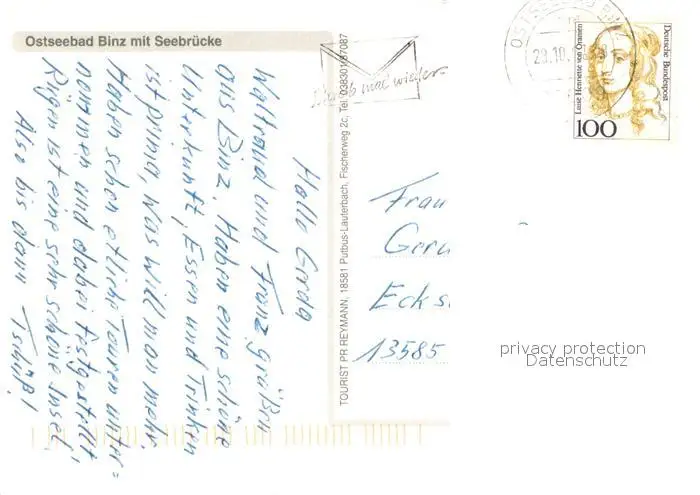 Ostseebad Binz mit Seebrücke
Hallo Gerda
Waltraud und Franz grüßen
aus Binz. Haben eine schöne
Unterkunft, Essen und Trinken
ist prima, was will man mehr.
Haben schon etliche Touren unter=
nommen und dabei festgestellt
Rügen ist eine sehr schöne Insel.
Also bis dann Tschüß!
TOURIST PR REYMANN, 18581 Putbus-Lauterbach, Fischerweg 2c, Tel. 03830187087
mal wieder
OSTSEEBAD BINZ
29.10.
Luise Henriette von Oranien
Deutsche Bundespost
100
Frau
Ecks
13585
privacy protection
Datenschutz